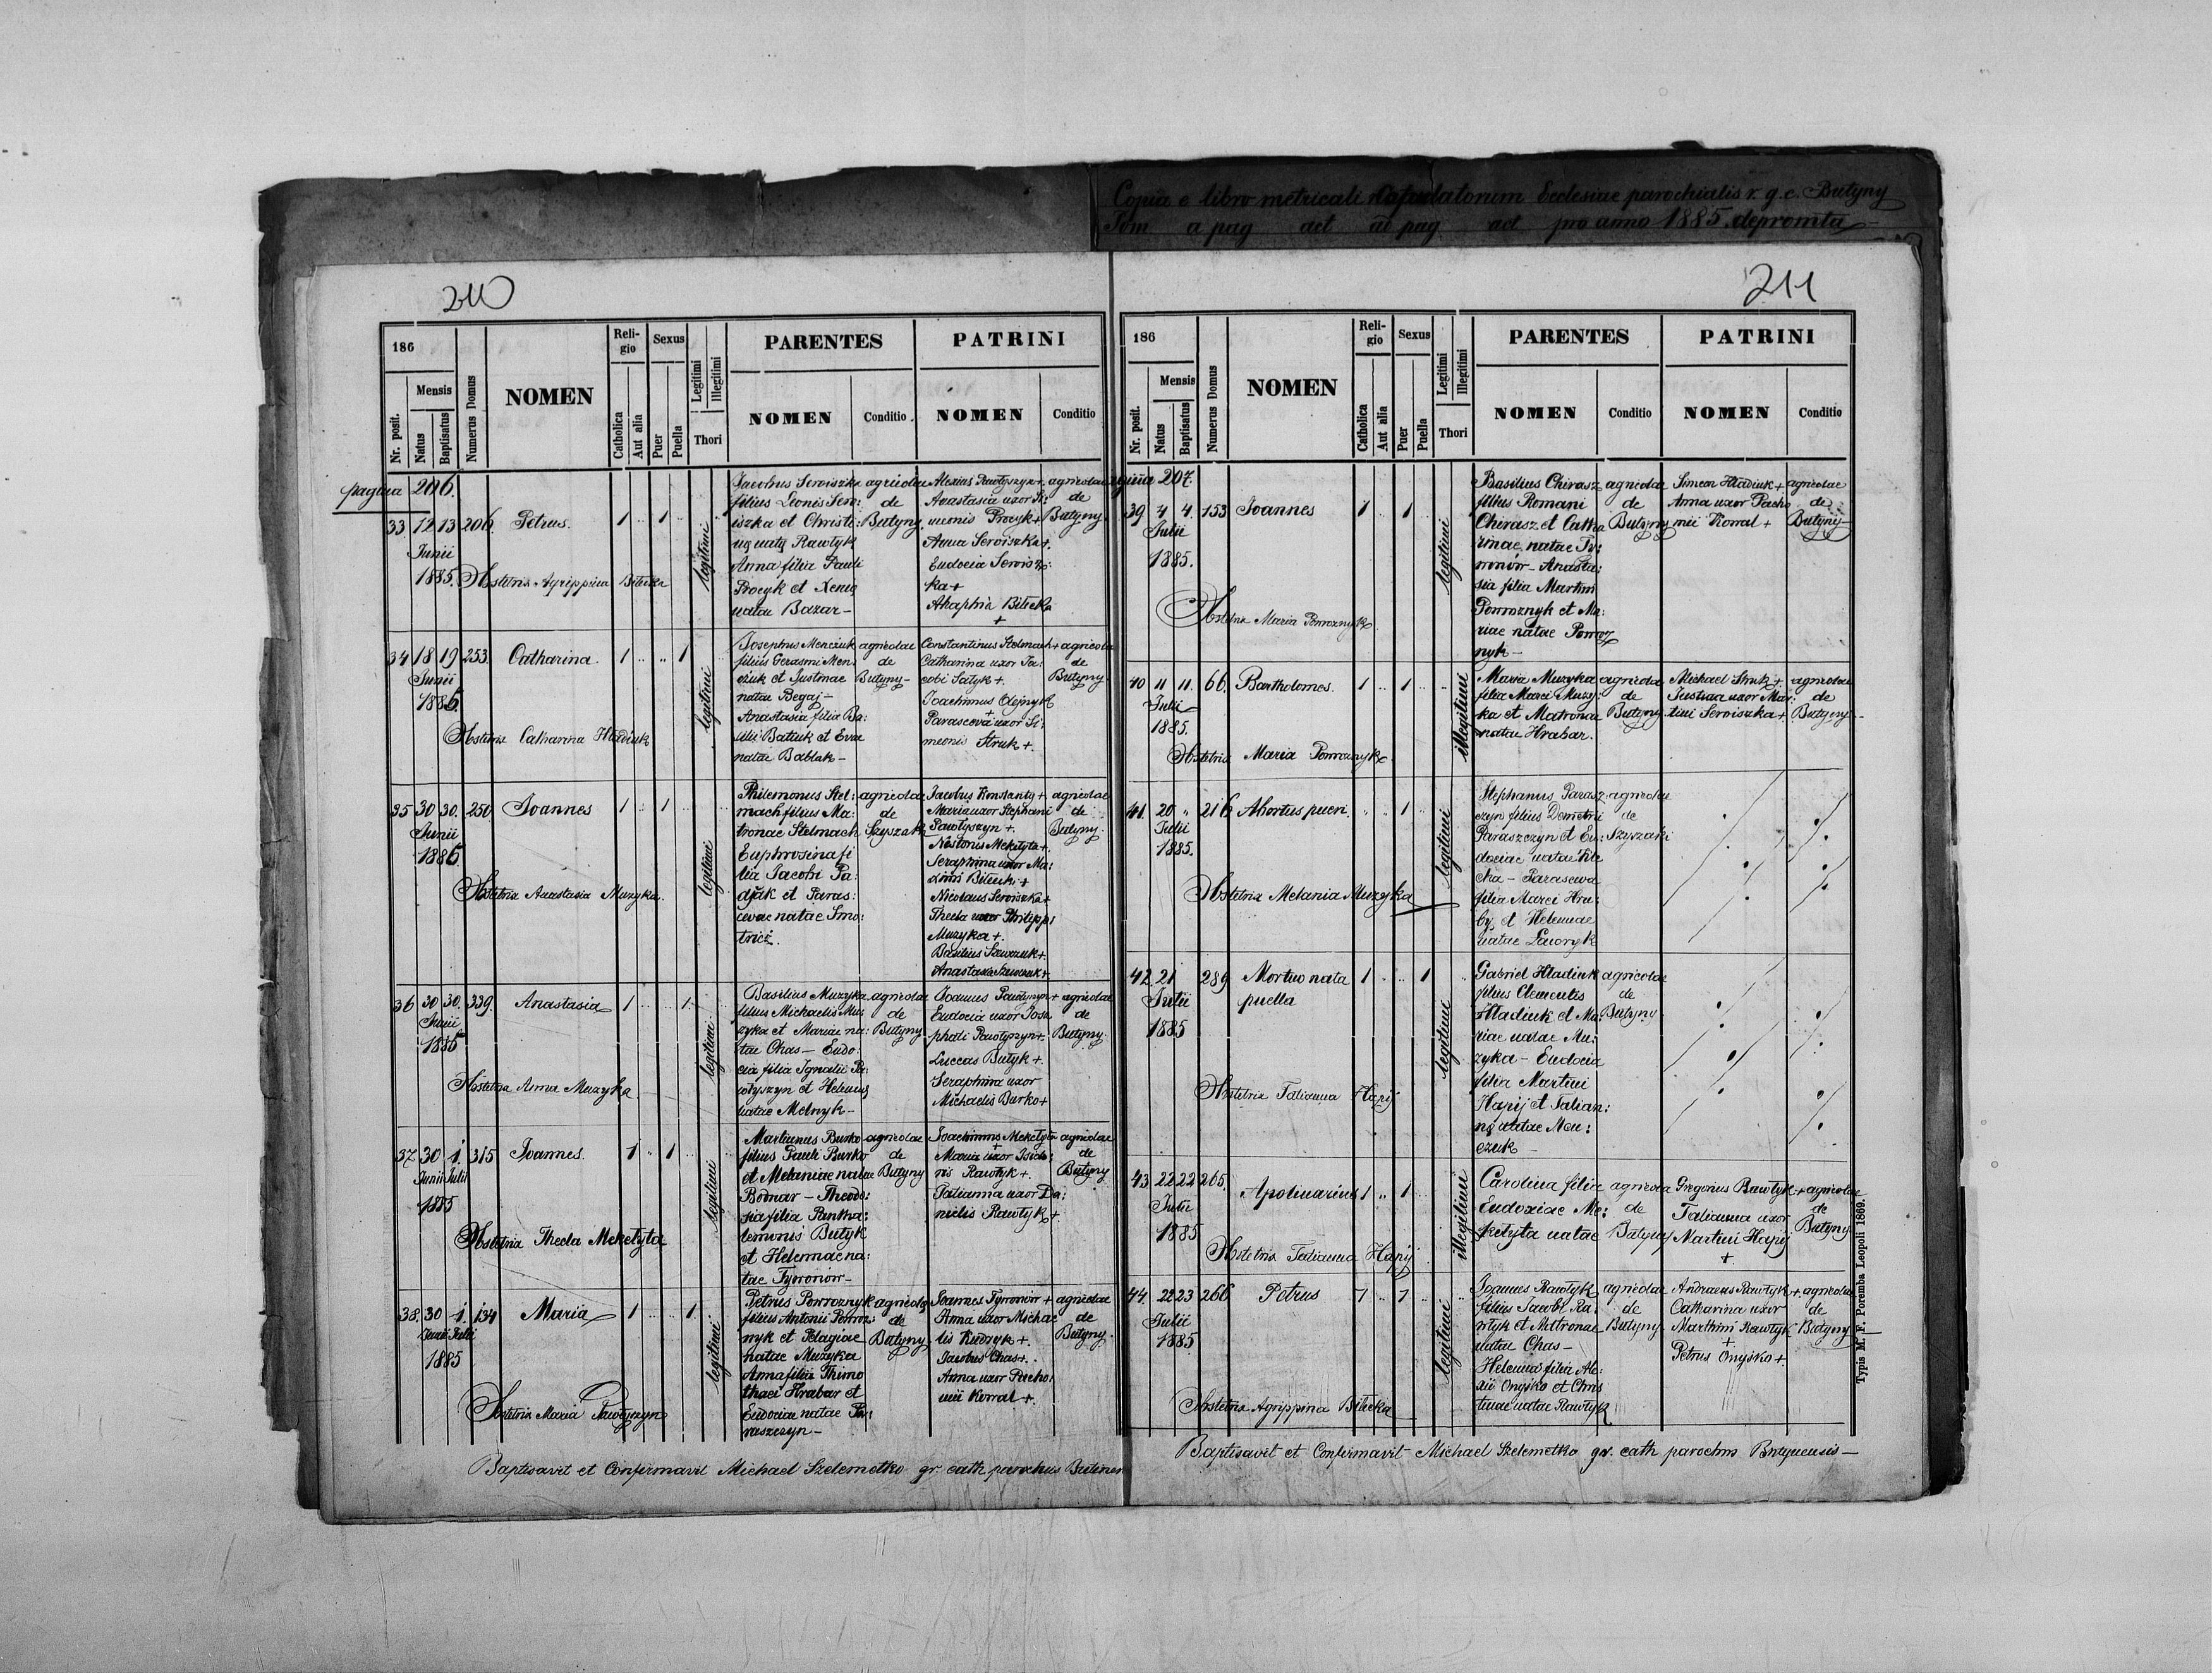 Copia e libro metricali Copulatorum Ecclesiae parochialis r. g. c. Butyny
Tom a pag act ad pag act pro anno 1885 depromta
210
186
Nr. posit.
Mensis
Natus
Baptisatus
Numerus Domus
NOMEN
Religio
Catholica
Aut alia
Sexus
Puer
Puella
Legitimi
Illegitimi
Thori
PARENTES
NOMEN
Conditio
PATRINI
NOMEN
Conditio
pagina 206.
33 12 13 206 Petrus. 1 1
Junii
1885. Obstetrix Agrippina Bilecka
legitimi
Jacobus Serwiszka
filius Leonis Serw:
iszka et Christi:
nę natę Rawłyk
Anna filia Pauli
Procyk et Xenię
natae Bazar-
agricolae
de
Butyny
Alexius Pawłyszyn+
Anastasia uxor Si:
meonis Procyk+
Anna Serwiszka+.
Eudocia Serwisz:
ka+
Ahaphia Bilecka
+
agricolae
de
Butyny
34 18 19 253. Catharina. 1 1
Junii
1885.
Obstetrix Catharina Hładiuk
legitimi
Josephus Menczuk
filius Gerasmi Men:
czuk et Justinae
natae Begaj-
Anastasia filia Ba:
silii Batiuk et Evae
natae Bablak-
agricolae
de
Butyny-
Constantinus Stelmach+
Catharina uxor Ja:
cobi Satyk+.
Joachimus Olejnyk
+
Parasceva uxor Si:
meonis Struk+.
agricolae
de
Butyny
35 30 30. 250 Joannes 1 1
Junii
1885.
Obstetrix Anastasia Muzyka.
legitimi
Philemonus Stel:
mach filius Ma:
tronae Stelmach
Euphrosina fi
lia Jacobi Pa:
djak et Paras:
cevae natae Smo:
tricė.
agricolae
de
Szyszaki
Jacobus Konstanty+.
Maria uxor Stephani
Pawłyszyn+.
Nestonis Mekełyta+.
Seraphina uxor Ma:
ximi Bileck+
Nicolaus Serwiszka+
Thecla uxor Philippi
Muzyka+.
Basilius Szewczuk+.
Anastasia Szewczuk+
agricolae
de
Butyny.
36 30 30. 339. Anastasia 1 1
Junii
1885
Obstetrix Anna Muzyka
legitimi
Basilius Muzyka
filius Michaelis Mu:
zyka et Mariae na:
tae Chas- Eudo:
cia filia Ignatii Pa:
włyszyn et Helenę
natae Melnyk-
agricolae
de
Butyny
Joannes Pawłyszyn+
Eudocia uxor Josa
phati Pawłyszyn+.
Luccas Butyk+.
Seraphina uxor
Michaelis Burko+
agricolae
de
Butyny.
37. 30 1. 315 Joannes. 1 1
Junii Julii
1885
Obstetrix Thecla Mekełyta
legitimi
Martianus Burko
filius Pauli Burko
et Melaniae natae
Bodnar- Theodo:
sia filia Panta:
lemonis Butyk
et Helenae na:
tae Tyronow-
agricolae
de
Butyny
Joachimus Mekełyta
+
Maria uxor Isido:
ris Rawłyk+.
Tatianna uxor Da:
nielis Rawłyk+.
agricolae
de
Butyny
38. 30 1. 134 Maria 1 1.
Junii Julii
1885
Obstetrix Maria Pawłyszyn
legitimi
Petrus Poworoznyk
filius Antonii Poworoz:
nyk et Pelagiae
natae Muzyka
Anna filia Thimo
thaei Hrabar et
Eudociae natae Pa:
raszczyn-
agricolae
de
Butyny
Joannes Tyronow+
Anna uxor Michae
lis Kudryk+.
Jacobus Chas+.
Anna uxor Pacho:
mii Kowal+.
agricolae
de
Butyny.
Baptisavit et Confirmavit Michael Szelemetko gr. cath parochus Butinen
211
186
Nr. posit.
Mensis
Natus
Baptisatus
Numerus Domus
NOMEN
Religio
Catholica
Aut alia
Sexus
Puer
Puella
Legitimi
Illegitimi
Thori
PARENTES
NOMEN
Conditio
PATRINI
NOMEN
Conditio
pagina 207.
39 4 4. 153 Joannes 1 1
Julii
1885.
Obstetrix Maria Poworoznyk
legitimi
Basilius Chirasz
filius Romani
Chirasz et Catha
rinae natae Ty:
ronów- Anasta:
sia filia Martini
Poworoznyk et Ma:
riae natae Poworoz
nyk-
agricolae
de
Butyny
Simeon Hładiuk+
Anna uxor Pacho
mii Kowal+
agricolae
de
Butyny-
40 11 11. 66. Bartholomes. 1 1
Julii
1885.
Obstetrix Maria Poworoznyk
illegitimi
Maria Muzyka
filia Marci Muzy:
ka et Matronae
natae Hrabar.
agricolae
de
Butyny
Michael Struk+
Justina uxor Mar:
tini Serwiszka+
agricolae
de
Butyny-
41. 20 " 216 Abortus pueri. 1
Julii
1885.
Obstetrix Melania Muzyka
legitimi
Stephanus Parasz
czyn filius Demetrii
Paraszczyn et Eu:
dociae natae Bile
cka- Parasceva
filia Marci Hru:
by, et Helennae
natae Ławryk
agricolae
de
Szyszaki
42. 21 289 Mortuo nata 1 1
Julii puella
1885
Obstetrix Tatianna Hapij
legitimi
Gabriel Hładiuk
filius Clementis
Hładiuk et Ma:
riae natae Mu:
zyka- Eudocia
filia Martini
Hapij et Tatian:
nę natae Men:
czuk-
agricolae
de
Butyny
43 22 22 265. Apolinarius 1 1
Julii
1885
Obstetrix Tatianna Hapij
illegitimi
Carolina filia
Eudoxiae Me:
kełyta natae
agricola
de
Butyny
Gregorius Rawłyk+
Tatianna uxor
Martini Hapij
+
agricolae
de
Butyny
44. 22 23 266 Petrus 1 1
Julii
1885
Obstetrix Agrippina Bilecka
legitimi
Joannes Rawłyk
filius Jacobi Ra:
włyk et Matronae
natae Chas-
Helenna filia Ale:
xii Onyśko et Chris
tinae natae Rawłyk
agricolae
de
Butyny
Andraeas Rawłyk+
Catharina uxor
Marthini Rawłyk
+
Petrus Onyśko+
agricolae
de
Butyny
Baptisavit et Confirmavit Michael Szelemetko gr. cath parochus Butynensis-
Typis M. F. Poremba Leopoli 1869.